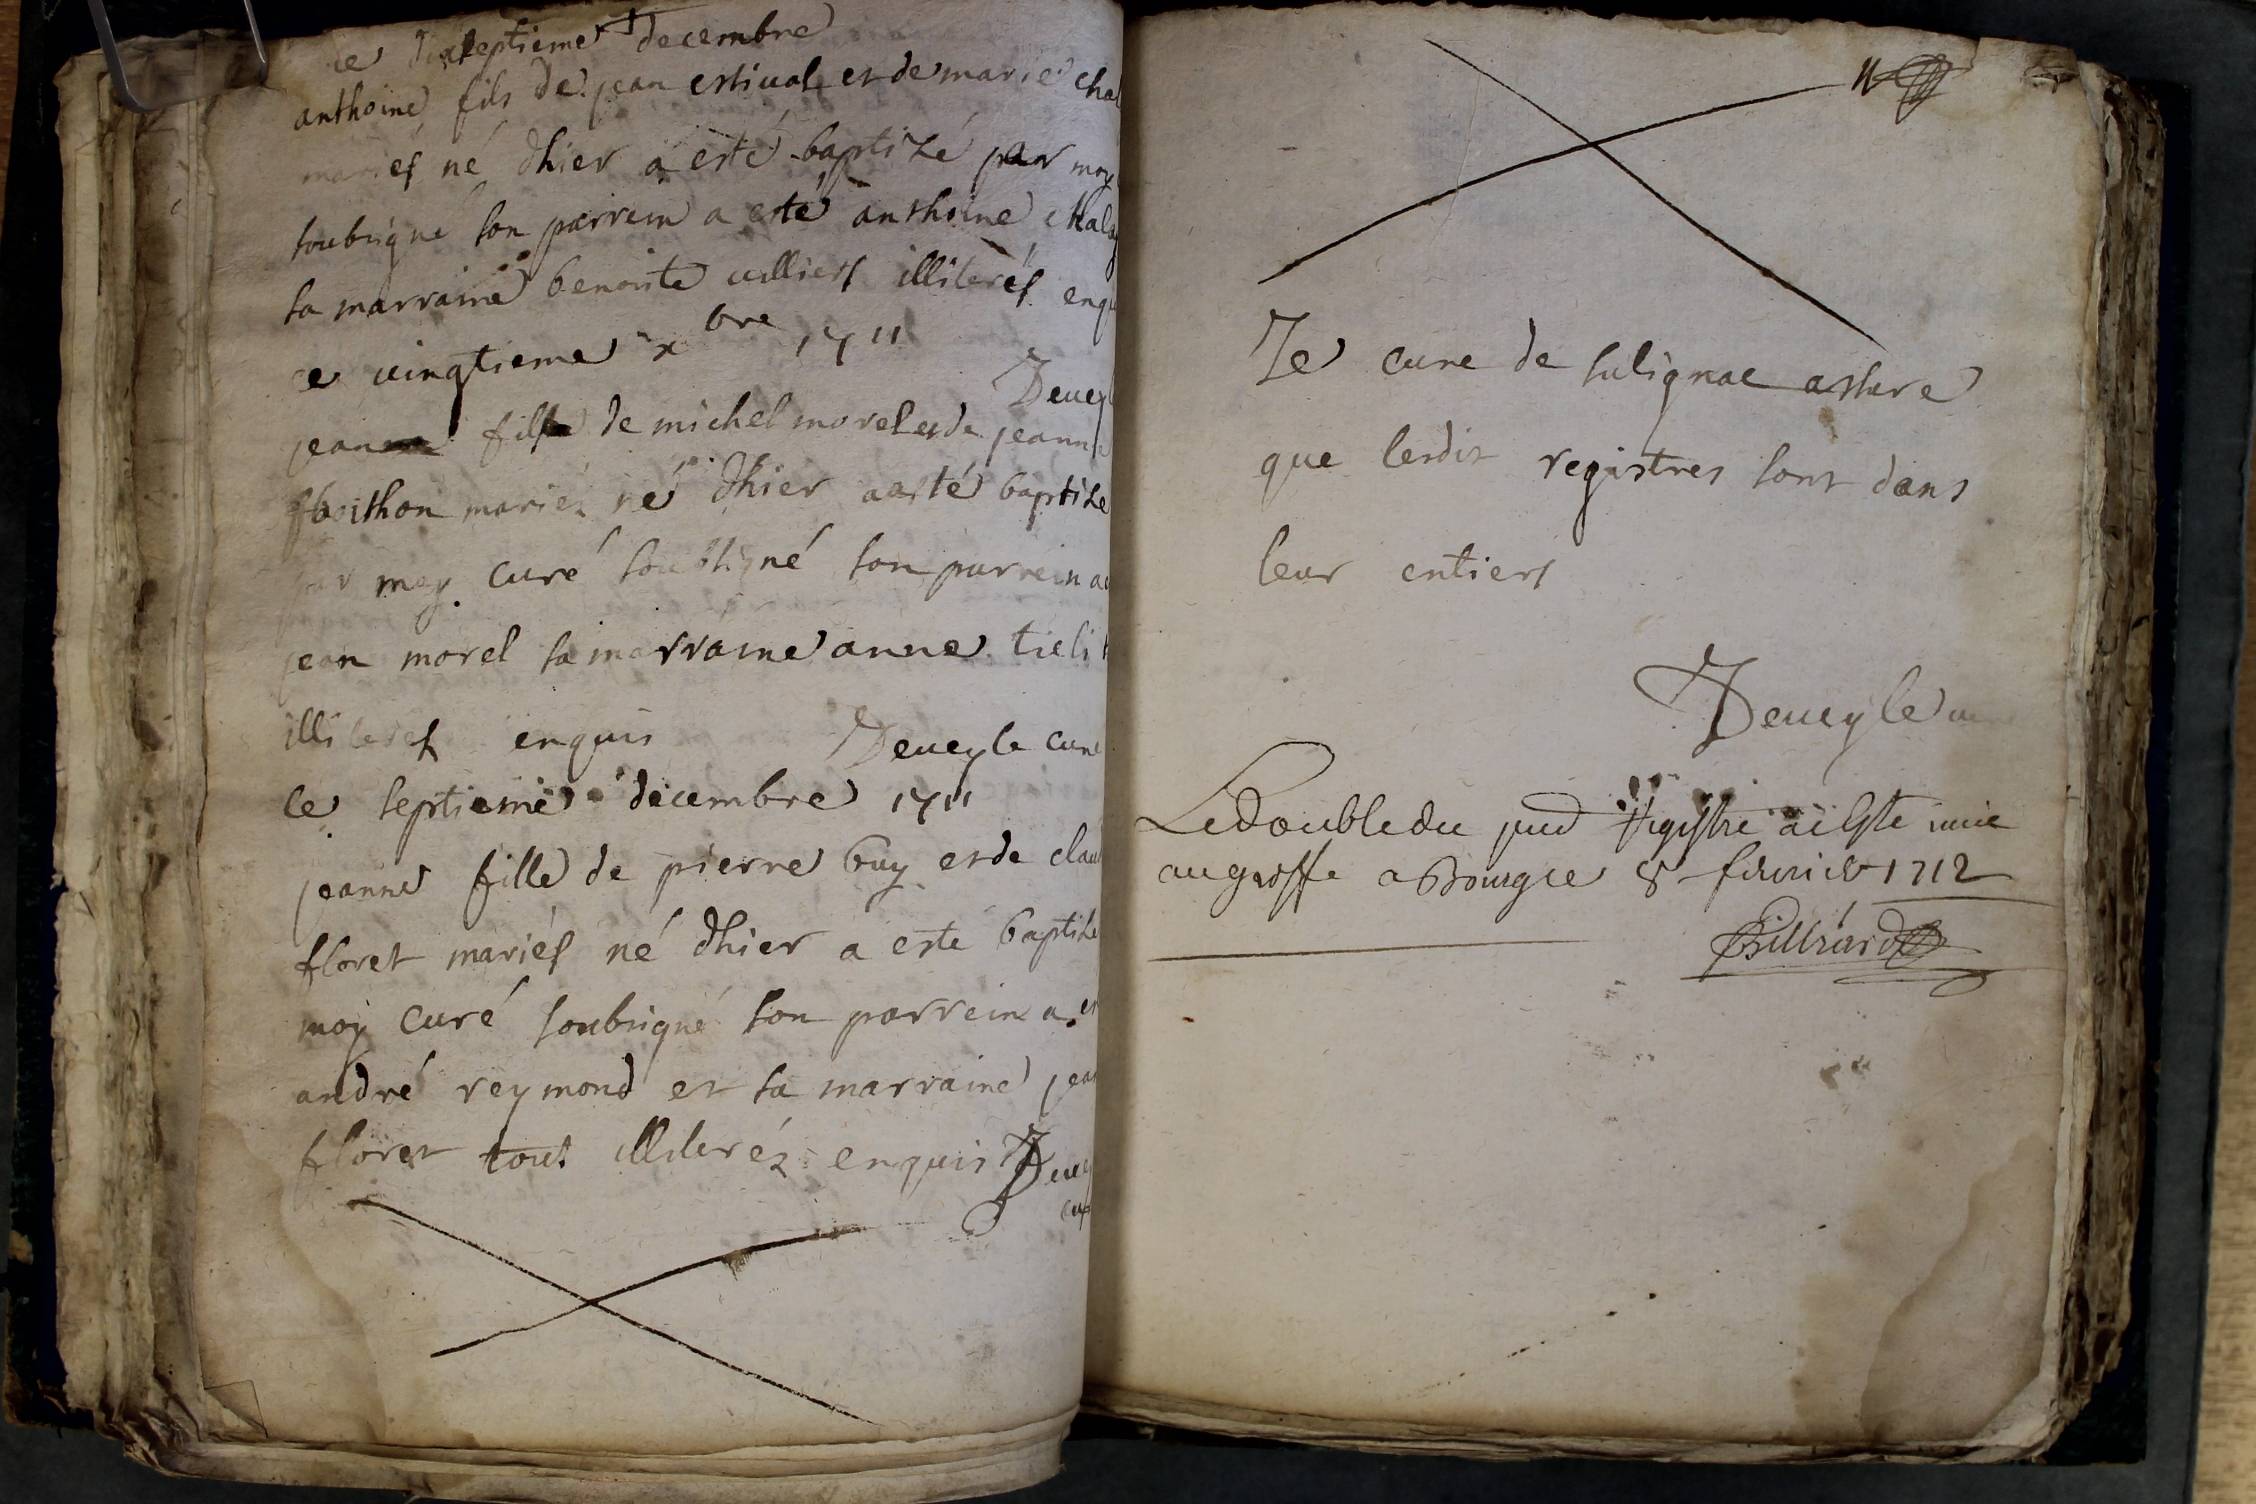 ce dixseptieme decembre
anthoine fils de jean estival et de marie chal
mariés né dhier a esté baptizé par moy
soubsigne son parrein a esté anthoine Mala
sa marraine benoite villiers illiterés enqu
ce vingtieme xbre 1711
Deveyl
jean fils de michel morel et de jeanne
mariéz né dhier a esté baptize
par moy curé soubsigné son parrein a
jean morel sa marraine anne
illiterés enquis Deveyle curé
ce septieme decembre 1711
jeanne fille de pierre buy et de clau
floret mariés né dhier a esté baptize
moy curé soubsigné son parrein a es
andré reymond et sa marraine jea
floret tout illiteréz enquis Devey
cu
11
Je curé de salignac assure
que lesdit registres sont dans
leur entiers
Deveyle curé
Le double du pnt Registre a esté mie
au greffe a Bourg ce 8 fevrier 1712
Billiard